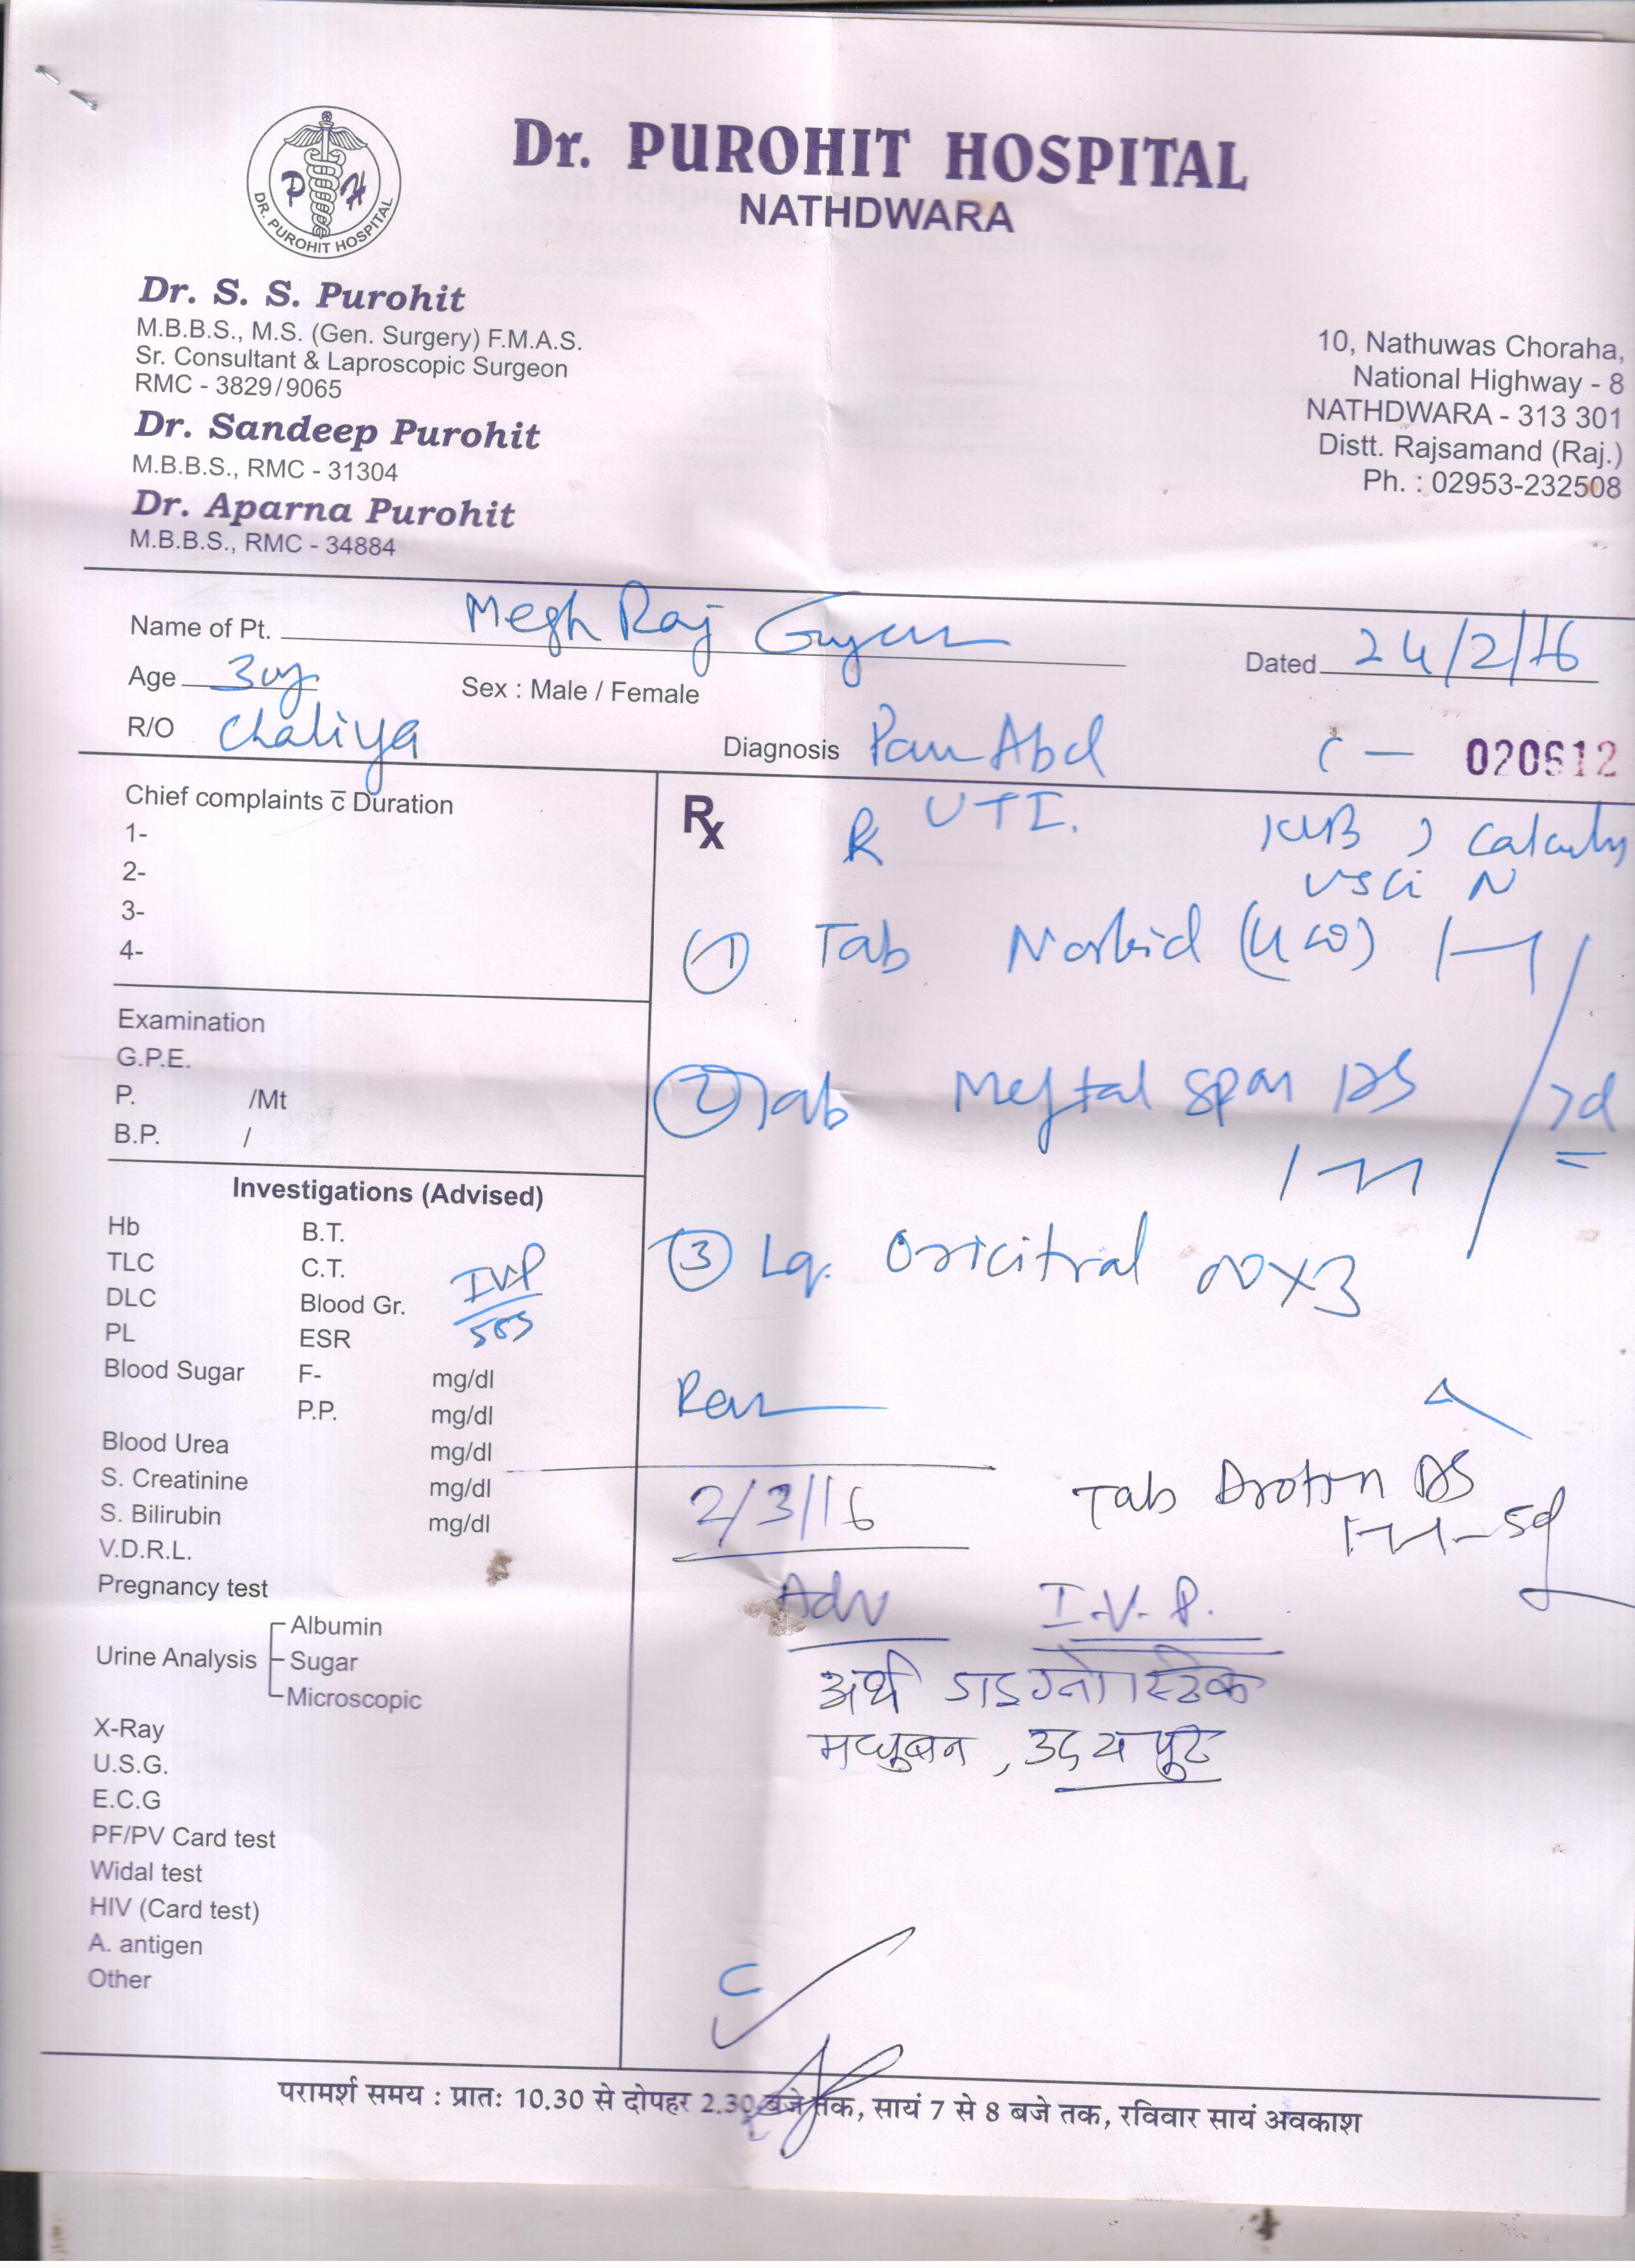 P H
DR. PUROHIT HOSPITAL
Dr. PUROHIT HOSPITAL
NATHDWARA
Dr. S. S. Purohit
M.B.B.S., M.S. (Gen. Surgery) F.M.A.S.
Sr. Consultant & Laproscopic Surgeon
RMC - 3829/9065
Dr. Sandeep Purohit
M.B.B.S., RMC - 31304
Dr. Aparna Purohit
M.B.B.S., RMC - 34884
10, Nathuwas Choraha,
National Highway - 8
NATHDWARA - 313 301
Distt. Rajsamand (Raj.)
Ph. : 02953-232508
Name of Pt. Megh Raj
Dated 24/2/16
Age 30y Sex : Male / Female
R/O Chaliya
Diagnosis Pain Abd
020612
Chief complaints c̅ Duration
1-
2-
3-
4-
Examination
G.P.E.
P. /Mt
B.P. /
Investigations (Advised)
Hb B.T.
TLC C.T.
DLC Blood Gr.
PL ESR
I.V.P
Blood Sugar F- mg/dl
P.P. mg/dl
Blood Urea mg/dl
S. Creatinine mg/dl
S. Bilirubin mg/dl
V.D.R.L.
Pregnancy test
Urine Analysis
Albumin
Sugar
Microscopic
X-Ray
U.S.G.
E.C.G
PF/PV Card test
Widal test
HIV (Card test)
A. antigen
Other
Rx
UTI.
KUB
N
① Tab (400)
② Tab Meftal Spas DS
7d
③ Lq. Oricitral
2/3/16
Tab Drotin DS
Adv I.V.P.
अर्थ डाइग्नोस्टिक
मधुबन, उदयपुर
परामर्श समय : प्रातः 10.30 से दोपहर 2.30 बजे तक, सायं 7 से 8 बजे तक, रविवार सायं अवकाश